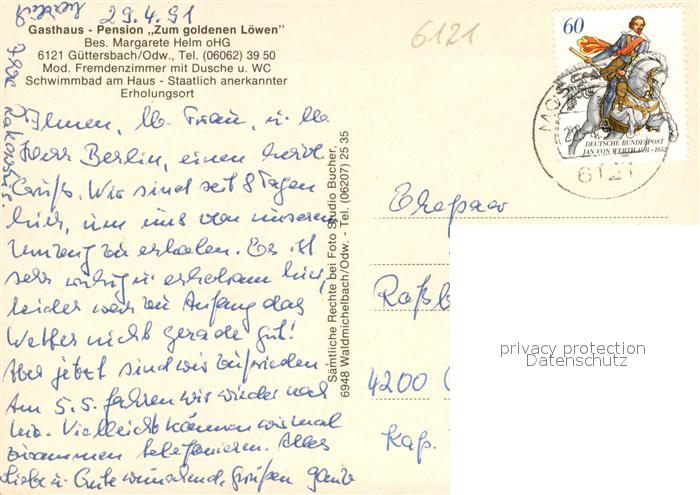 29.4.91
Gasthaus - Pension „Zum goldenen Löwen"
Bes. Margarete Helm oHG
6121 Güttersbach/Odw., Tel. (06062) 39 50
Mod. Fremdenzimmer mit Dusche u. WC
Schwimmbad am Haus - Staatlich anerkannter
Erholungsort
Ihnen, lb. Frau, u. lb.
Herr Berlin, einen herzl.
Gruß. Wir sind seit 8 Tagen
hier, um uns von unserem
Umzug zu erholen. Es ist
sehr ruhig u. erholsam hier,
leider war zu Anfang das
Wetter nicht gerade gut!
Aber jetzt sind wir zufrieden.
Am 5.5. fahren wir wieder nach
. Vielleicht können wir mal
zusammen telefonieren. Alles
Liebe u. Gute wünschend, grüßen ganz
herzlich
Ihre
Sämtliche Rechte bei Foto Studio Bucher,
6948 Waldmichelbach/Odw. - Tel. (06207) 25 35
6121
60
DEUTSCHE BUNDESPOST
JAN VON WERTH 1591-1652
MO
6121
Ehepaar
4200
Kap.
privacy protection
Datenschutz